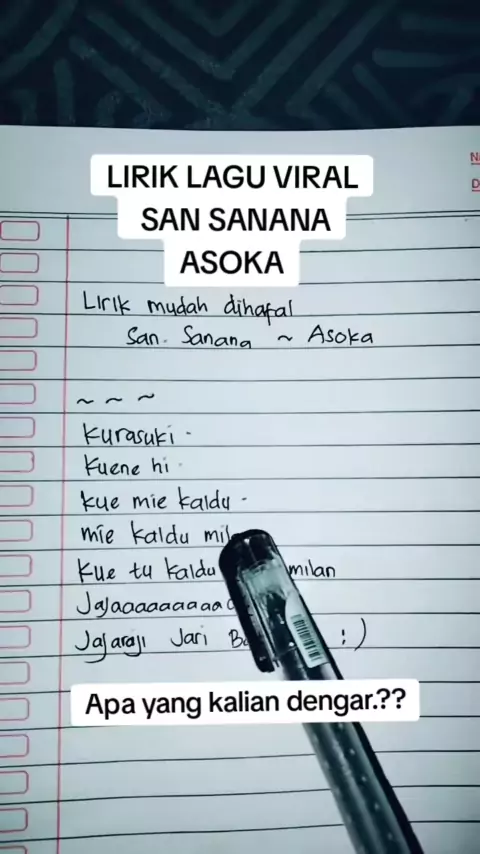 LIRIK LAGU VIRAL
SAN SANANA
ASOKA
Lirik mudah dihafal
San. Sanana ~ Asoka
~ ~ ~
Kurasuki -
Kuene hi -
kue mie kaldu -
mie kaldu
Kue tu kaldu milan
Jajaraji Jari :)
Apa yang kalian dengar.??